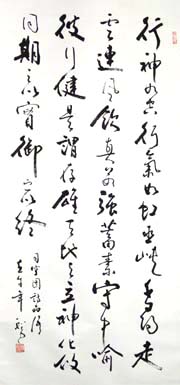 行神如空行氣如虹巫峽千尋走
雲連風飲真茹強蓄素守中喻
彼行健是謂存雄天地与立神化攸
同期之以實御之以終
司空圖詩品
年